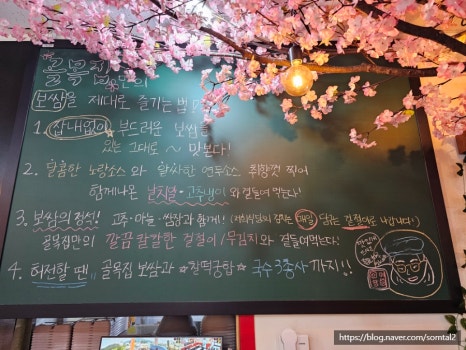 골목집만의
보쌈을 제대로 즐기는 법
1. 잡내없이 부드러운 보쌈을
있는 그대로 ~ 맛본다!
2. 달콤한 노랑소스와 알싸한 연두소스 취향껏 찍어
함께나온 날치알·고추냉이와 곁들여 먹는다!
3. 보쌈의 정석! 고추·마늘·쌈장과 함께!! 매일 담는 겉절이로 나갑니다!)
골목집만의 깔끔 칼칼한 겉절이/무김치와 곁들여먹는다!
4. 허전할 땐,, 골목집 보쌈과 ☆찰떡궁합☆ 국수 3총사 까지!!
https://blog.naver.com/somtal2